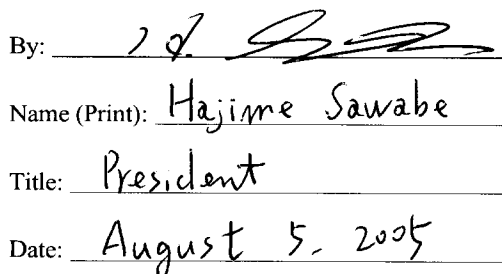 By:
Name (Print): Hajime Sawabe
Title: President
Date: August 5. 2005